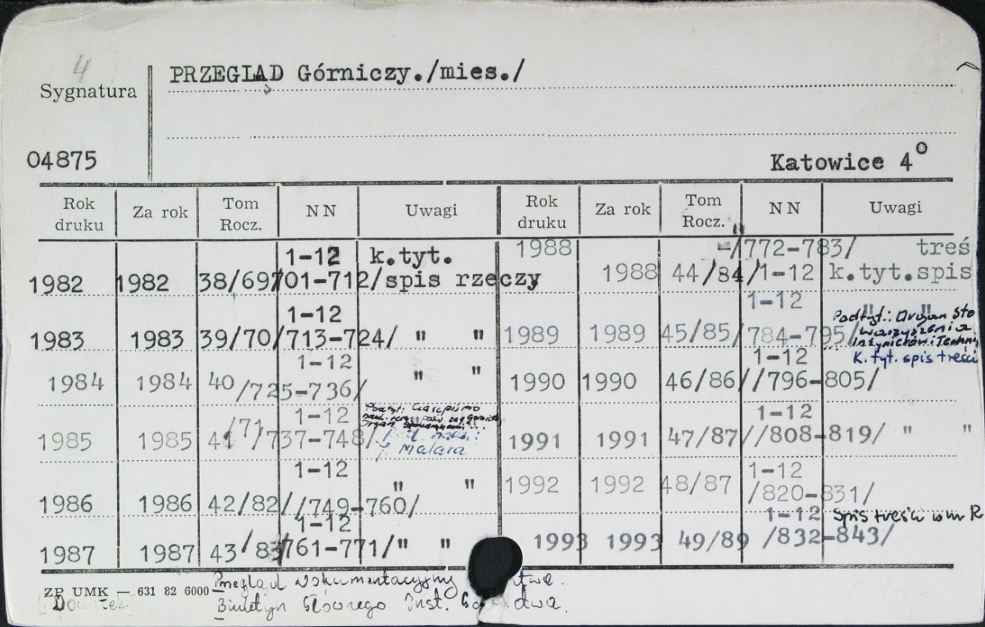 4
PRZEGLĄD Górniczy./mies./
Sygnatura
04875
Katowice 4°
Rok druku Za rok Tom Rocz. NN Uwagi Rok druku Za rok Tom Rocz. NN Uwagi
1982 1982 38/69/ 1-12 /701-712/ k.tyt. spis rzeczy
1983 1983 39/70/ 1-12 /713-724/ " "
1984 1984 40 1-12 /725-736/ " "
1985 1985 41/71/ 1-12 /737-748/
1986 1986 42/82/ 1-12 /749-760/ " "
1987 1987 43/83/ 1-12 /761-771/ " "
1988 1988 44/84/ /772-783/ 1-12 treś k.tyt.spis
1989 1989 45/85/ 1-12 /784-795/ " " Podtyt.: Organ Sto
warzyszenia
Inżynierów i Techni
K. tyt. spis treści
1990 1990 46/86/ 1-12 /796-805/
1991 1991 47/87/ 1-12 /808-819/ " "
1992 1992 48/87 1-12 /820-831/
1993 1993 49/89 1-12 /832-843/ Spis treści
ZP UMK — 631 82 6000
Przegląd Dokumentacyjny
Biuletyn Głównego Inst.